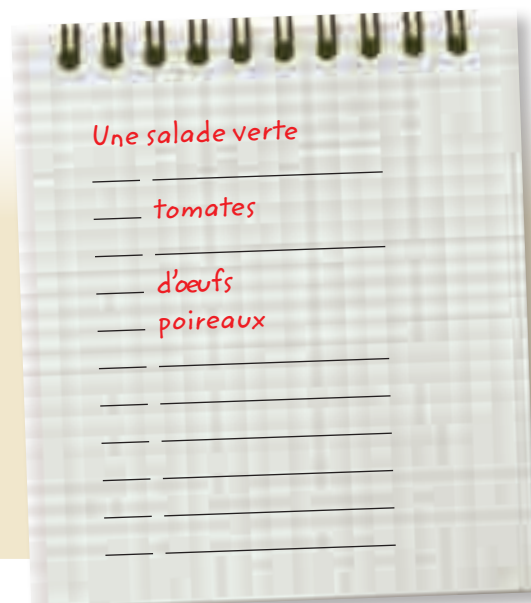 Une salade verte
___ _______________
___ tomates
___ _______________
___ d'œufs
___ poireaux
___ _______________
___ _______________
___ _______________
___ _______________
___ _______________
___ _______________